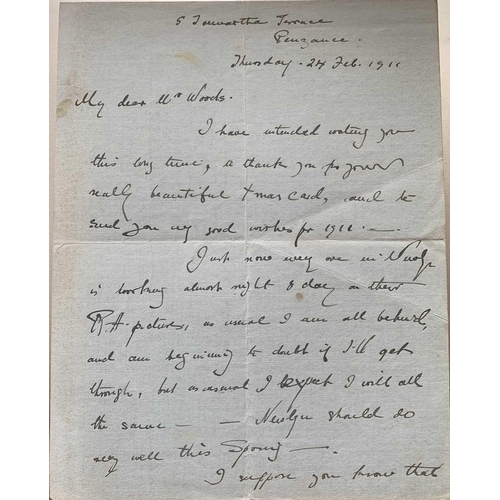 5 Trewartha Terrace
Penzance.
Thursday. 24 Feb. 1911
My dear Mr Woods.
I have intended writing you
this long time, to thank you for your
really beautiful Xmas Card, and to
send you my good wishes for 1911. —
Just now every one in Newlyn
is working almost night & day on their
R.A. pictures, as usual I am all behind,
and am beginning to doubt if I'll get
through, but as usual I expect I will all
the same — — Newlyn should do
very well this Spring —.
I suppose you know that